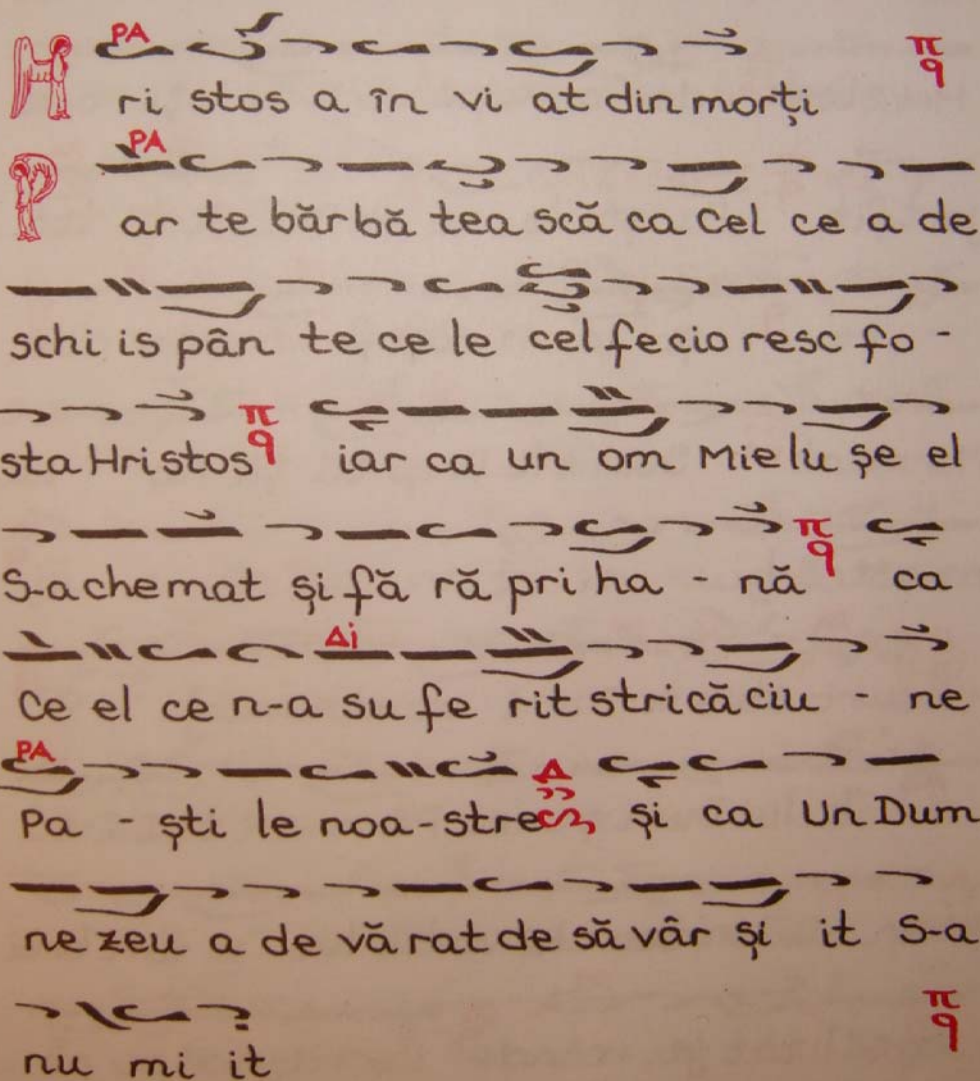 PA π q
Hri stos a în vi at din morți
PA
Par te bărbă tea scă ca Cel ce a de
schi is pân te ce le cel fecio resc fo -
sta Hri stos π q iar ca un om Mie lu șe el
S-a chemat și fă ră pri ha - nă π q ca
Δi
Ce el ce n-a su fe rit stricăciu - ne
PA Δ
Pa - ști le noa-stre și ca Un Dum
ne zeu a de vă rat de să vâr și it S-a
π q
nu mi it